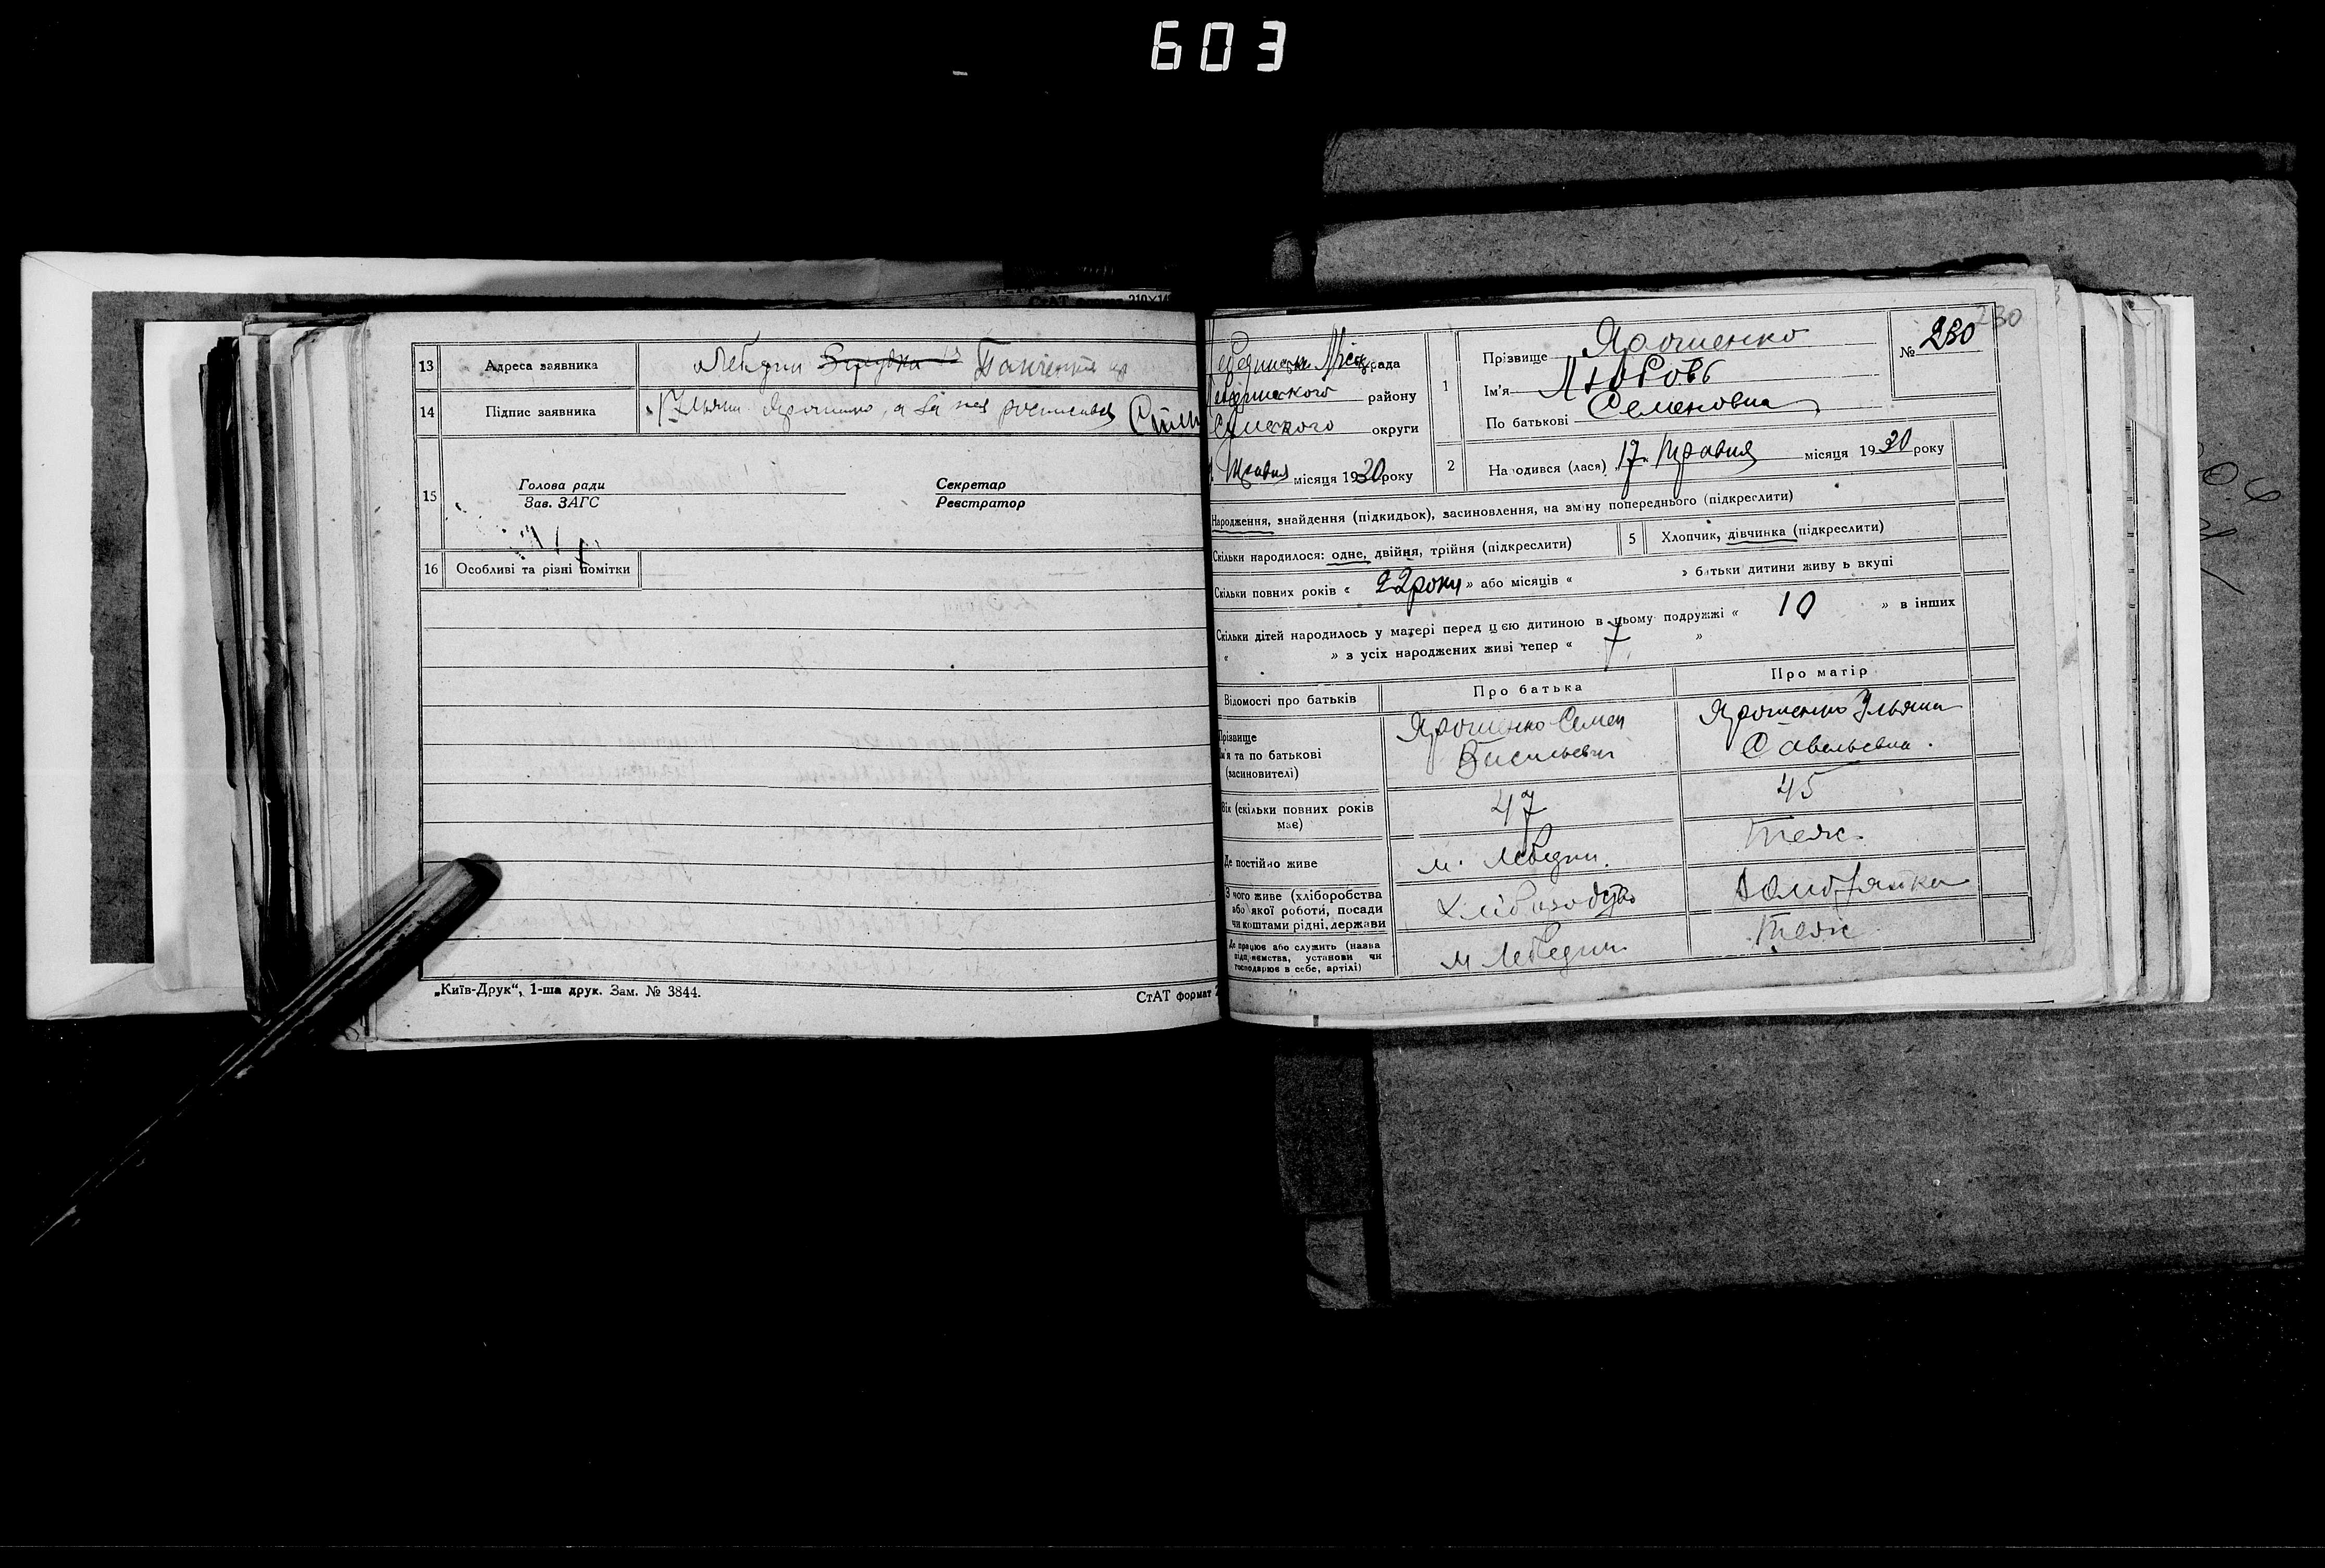 603
13 Адреса заявника Лебедин
14 Підпис заявника Ульяна Ярошенко, а за нея росписався
15 Голова ради Секретар
Зав. ЗАГС Реєстратор
16 Особливі та різні помітки
„Київ-Друк“, 1-ша друк. Зам. № 3844. СтАТ формат
рада
району
округи
Травня місяця 1930 року
1 Прізвище Ярошенко
Ім'я Любовь
По батькові Семеновна
№ 230
230
2 Народився (лася) 17 Травня місяця 1930 року
Народження, знайдення (підкидьок), засиновлення, на зміну попереднього (підкреслити)
Скільки народилося: одне, двійня, трійня (підкреслити) 5 Хлопчик, дівчинка (підкреслити)
Скільки повних років « 22 роки » або місяців « » батьки дитини живуть вкупі
Скільки дітей народилось у матері перед цією дитиною в цьому подружжі « 10 » в інших
« » з усіх народжених живі тепер « 7 »
Відомості про батьків Про батька Про матір
Прізвище Ярошенко Семен Ярошенко Ульяна
ім'я та по батькові Васильевич Савельевна.
(засиновителі)
Вік (скільки повних років має) 47 45
Де постійно живе м. Лебедин. Теж.
З чого живе (хліборобства
або якої роботи, посади
чи коштами рідні, держави
Де працює або служить (назва
підприємства, установи чи
господарює в себе, артілі) м Лебедин Теж